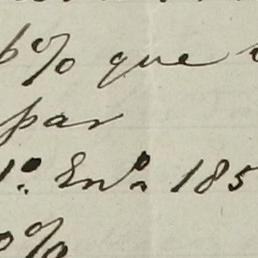 6% que
par
1º. Enº. 185
0%